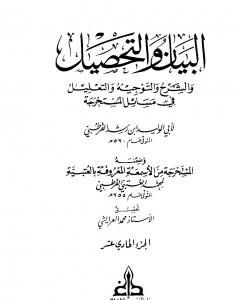 البيان والتحصيل
والشرح والتوجيه والتعليل
في مسائل المستخرجة
لأبي الوليد ابن رشد القرطبي
المتوفى عام ٥٢٠هـ
وضمنه
المستخرجة من الأسمعة المعروفة بالعتبية
لمحمد العتبي القرطبي
المتوفى عام ٢٥٥هـ
تحقيق
الأستاذ محمد العرايشي
الجزء الحادي عشر